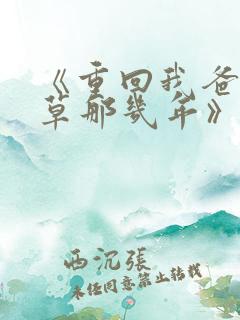 《重回我爸
草那幾年》
西沉張
未经同意禁止转载